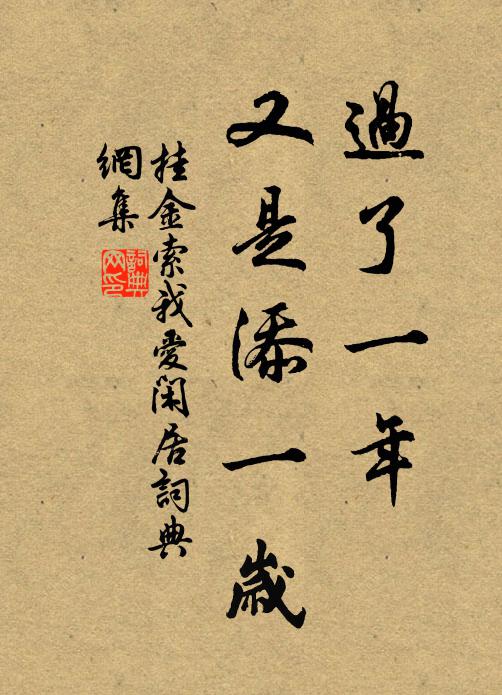 過了一年
又是添一歲
挂金索我愛閑居詞典
網集
詞典
网印